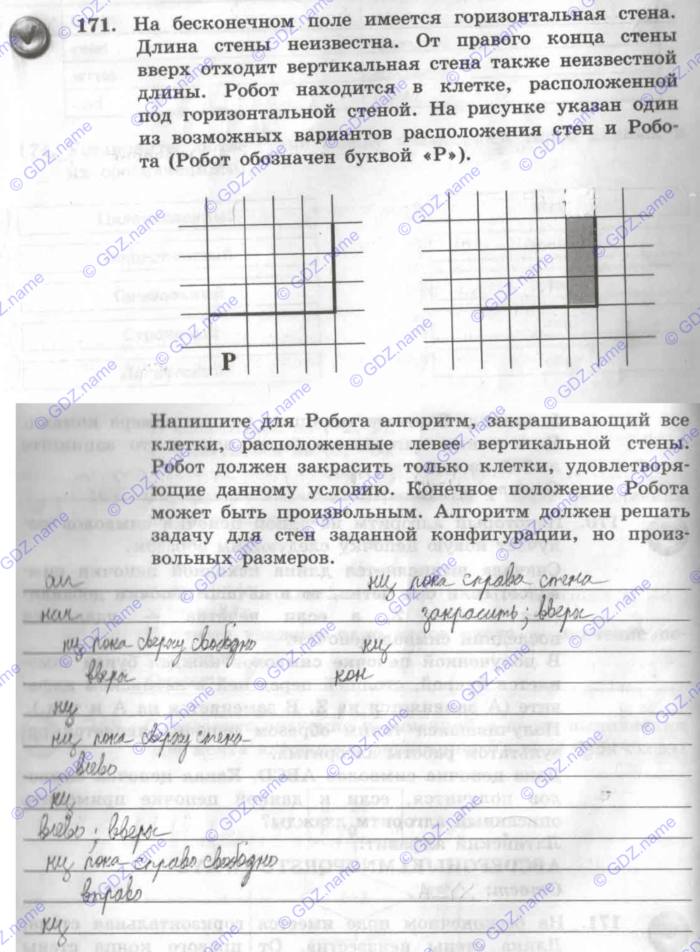 171. На бесконечном поле имеется горизонтальная стена.
Длина стены неизвестна. От правого конца стены
вверх отходит вертикальная стена также неизвестной
длины. Робот находится в клетке, расположенной
под горизонтальной стеной. На рисунке указан один
из возможных вариантов расположения стен и Робо-
та (Робот обозначен буквой «Р»).
Р
Напишите для Робота алгоритм, закрашивающий все
клетки, расположенные левее вертикальной стены.
Робот должен закрасить только клетки, удовлетворя-
ющие данному условию. Конечное положение Робота
может быть произвольным. Алгоритм должен решать
задачу для стен заданной конфигурации, но произ-
вольных размеров.
ал
нач
нц пока сверху свободно
вверх
кц
нц пока сверху стена
влево
кц
влево; вверх
нц пока справа свободно
вправо
кц
нц пока справа стена
закрасить; вверх
кц
кон
© GDZ.name